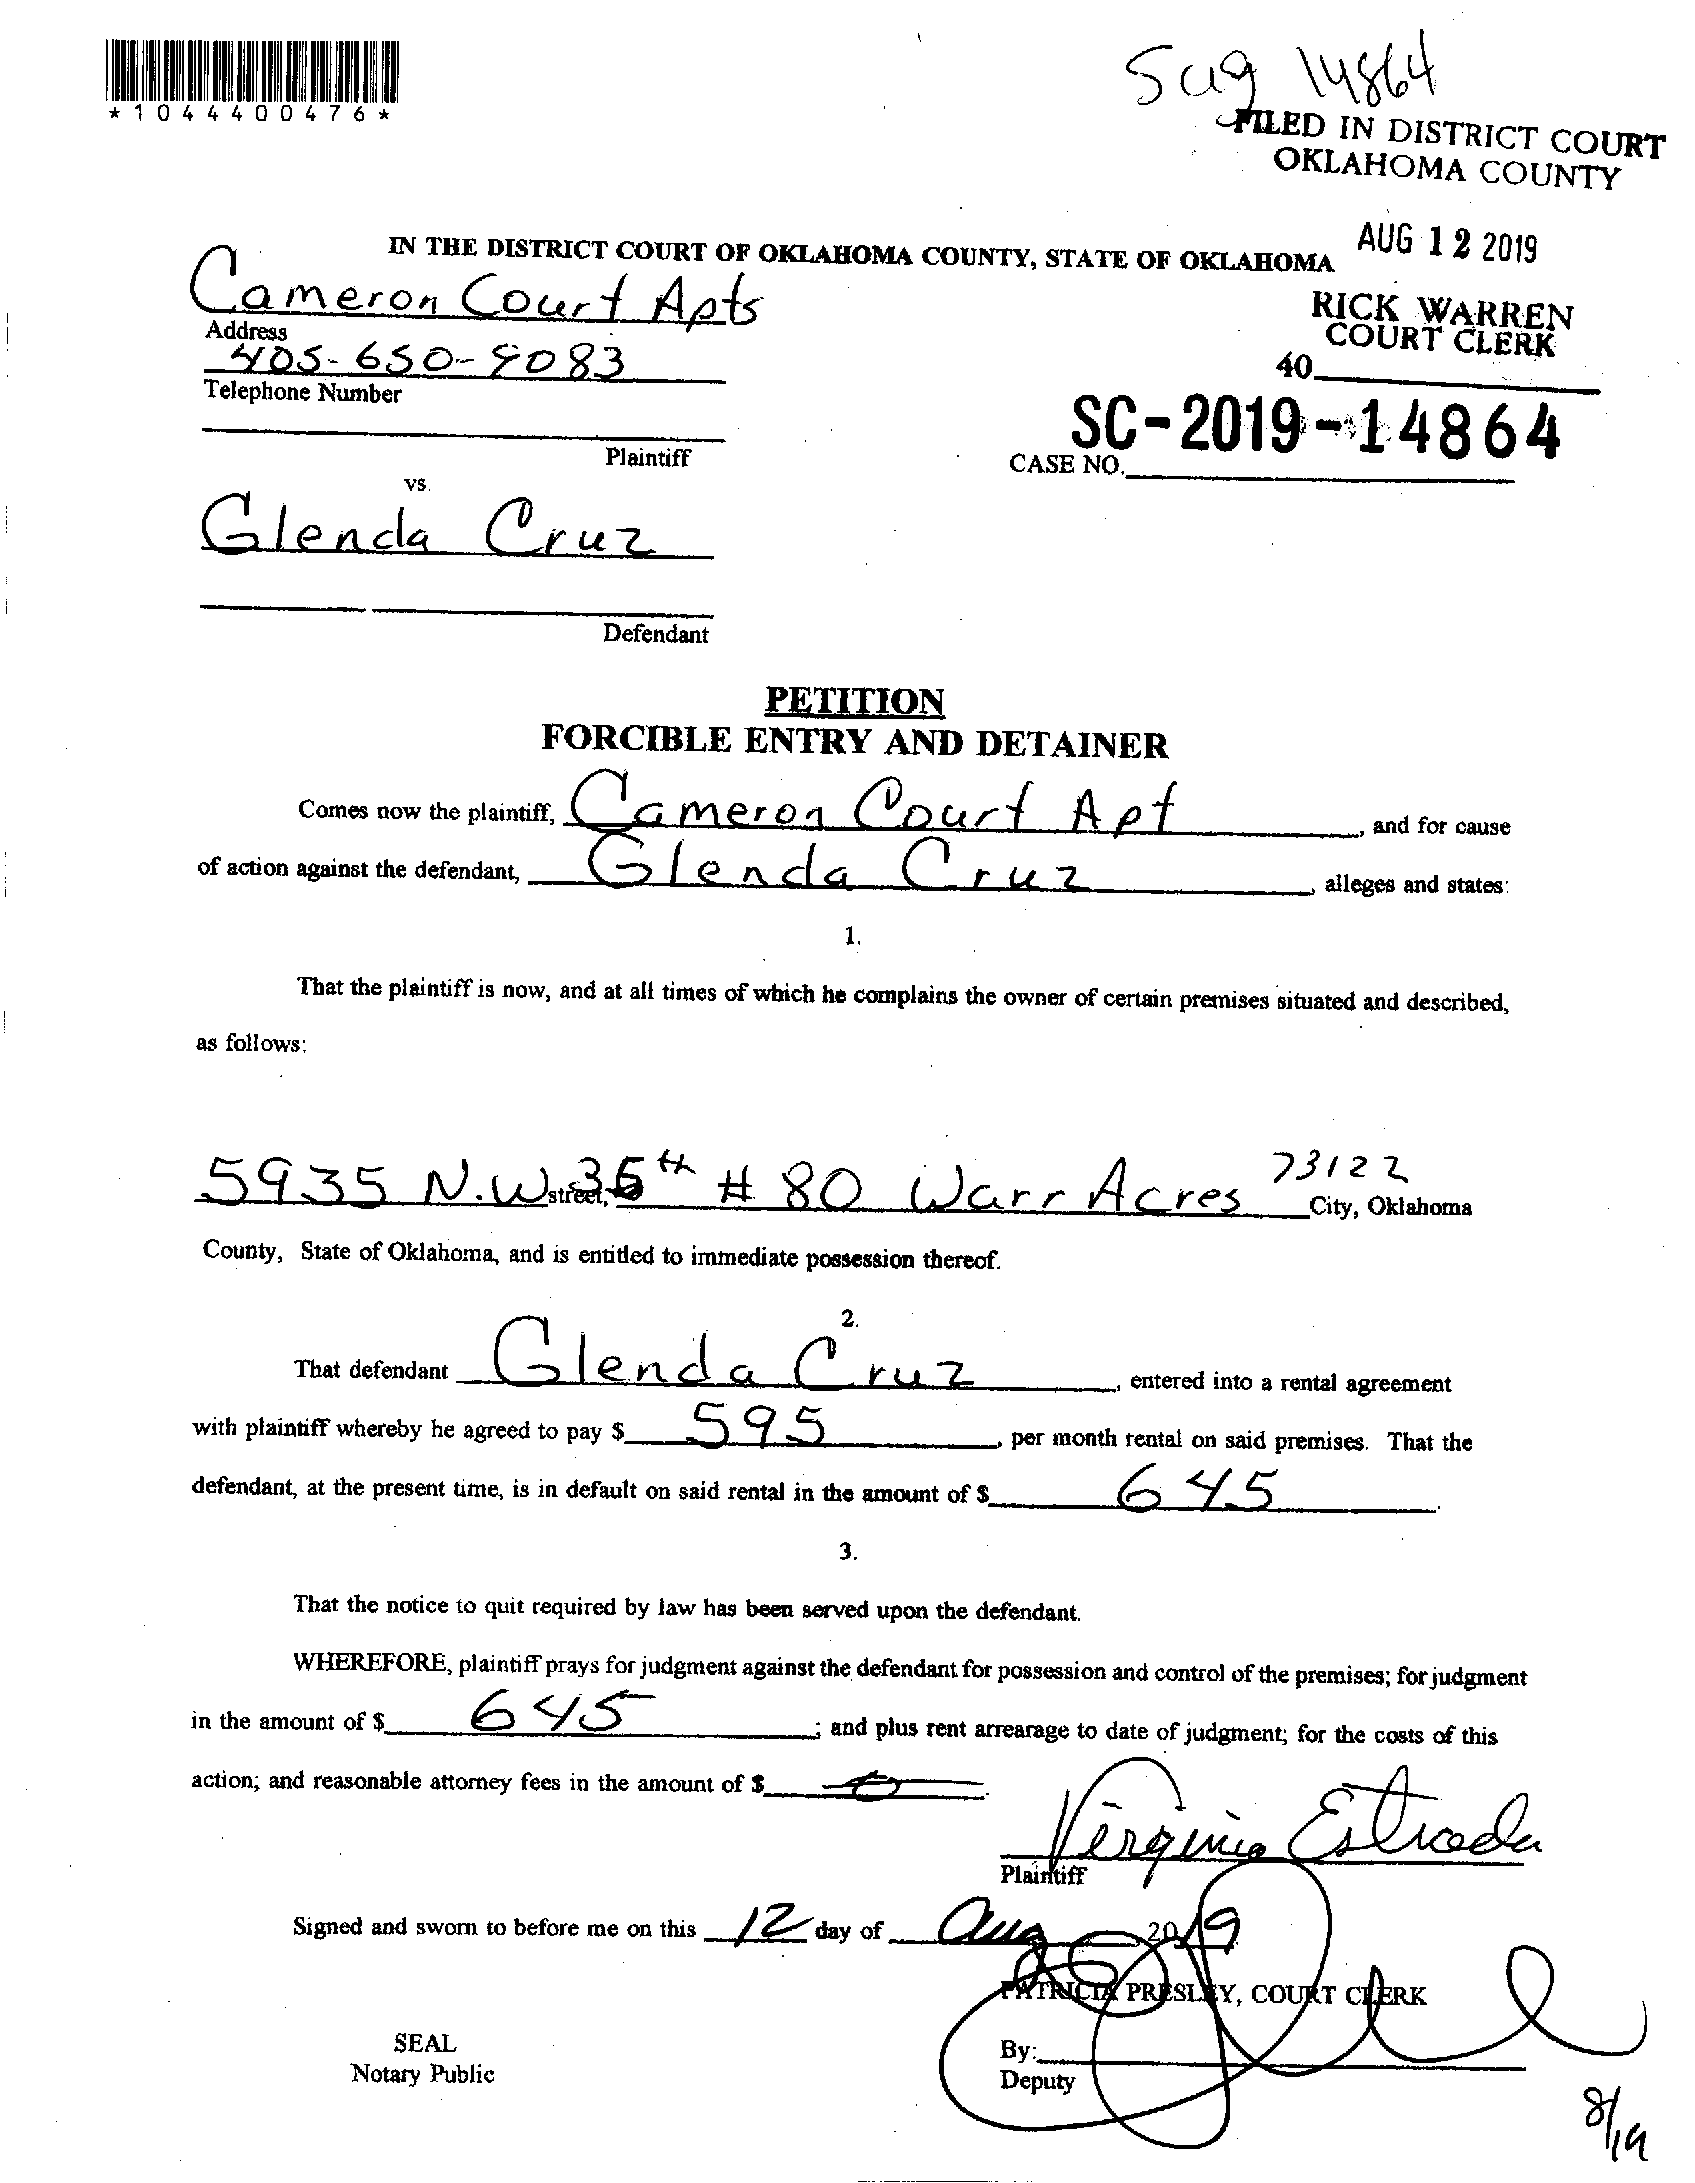 *1044400476*
SC19 14864
FILED IN DISTRICT COURT
OKLAHOMA COUNTY
AUG 12 2019
RICK WARREN
COURT CLERK
40
IN THE DISTRICT COURT OF OKLAHOMA COUNTY, STATE OF OKLAHOMA
Cameron Court Apts
Address
405-650-9083
Telephone Number
Plaintiff
SC-2019-14864
CASE NO.
vs.
Glenda Cruz
Defendant
PETITION
FORCIBLE ENTRY AND DETAINER
Comes now the plaintiff, Cameron Court Apt, and for cause
of action against the defendant, Glenda Cruz, alleges and states:
1.
That the plaintiff is now, and at all times of which he complains the owner of certain premises situated and described,
as follows:
5935 N.W. street, 36th # 80 Warr Acres 73122 City, Oklahoma
County, State of Oklahoma, and is entitled to immediate possession thereof.
2.
That defendant Glenda Cruz, entered into a rental agreement
with plaintiff whereby he agreed to pay $ 595, per month rental on said premises. That the
defendant, at the present time, is in default on said rental in the amount of $ 645.
3.
That the notice to quit required by law has been served upon the defendant.
WHEREFORE, plaintiff prays for judgment against the defendant for possession and control of the premises; for judgment
in the amount of $ 645; and plus rent arrearage to date of judgment; for the costs of this
action; and reasonable attorney fees in the amount of $ 0.
Virginia Estrada
Plaintiff
Signed and sworn to before me on this 12 day of Aug, 2019
PATRICIA PRESLEY, COURT CLERK
SEAL
Notary Public
By:
Deputy
8/19